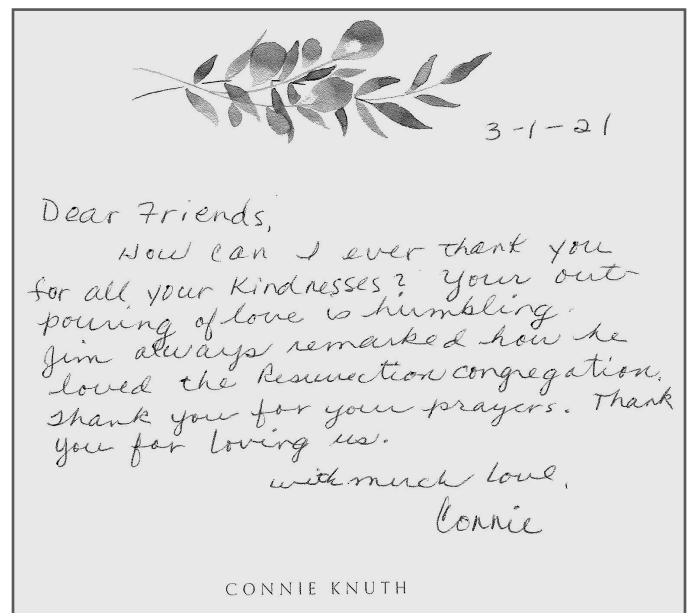 3-1-21
Dear Friends,
How can I ever thank you
for all your Kindnesses? Your out-
pouring of love is humbling.
Jim always remarked how he
loved the Resurrection congregation.
Thank you for your prayers. Thank
you for loving us.
with much love,
Connie
CONNIE KNUTH